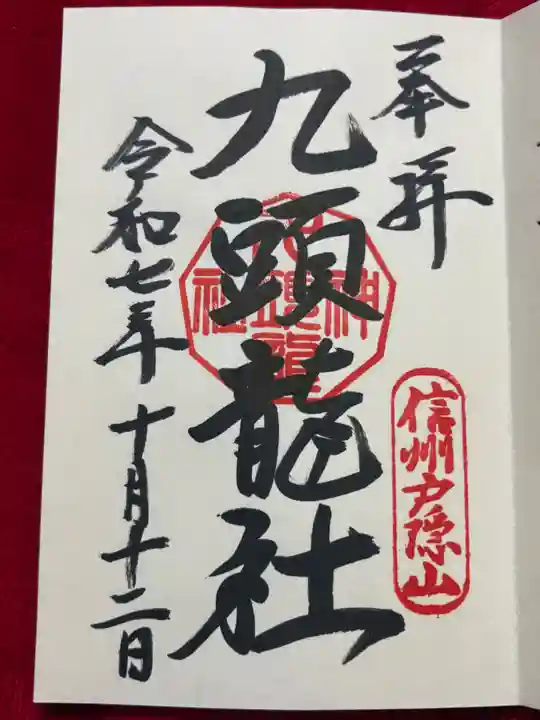 奉拝
信州戸隠山
九頭龍社
令和七年十月十二日